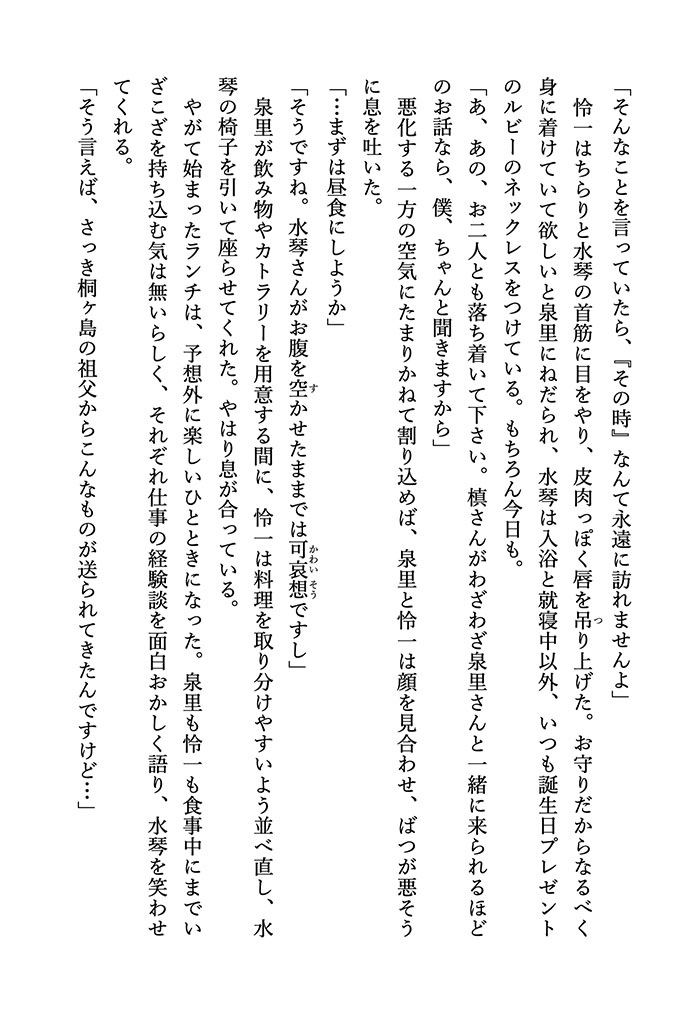 「そんなことを言っていたら、『その時』なんて永遠に訪れませんよ」
　怜一はちらりと水琴の首筋に目をやり、皮肉っぽく唇を吊り上げた。お守りだからなるべく
身に着けていて欲しいと泉里にねだられ、水琴は入浴と就寝中以外、いつも誕生日プレゼント
のルビーのネックレスをつけている。もちろん今日も。
「あ、あの、お二人とも落ち着いて下さい。槙さんがわざわざ泉里さんと一緒に来られるほど
のお話なら、僕、ちゃんと聞きますから」
　悪化する一方の空気にたまりかねて割り込めば、泉里と怜一は顔を見合わせ、ばつが悪そう
に息を吐いた。
「…まずは昼食にしようか」
「そうですね。水琴さんがお腹を空かせたままでは可哀想ですし」
　泉里が飲み物やカトラリーを用意する間に、怜一は料理を取り分けやすいよう並べ直し、水
琴の椅子を引いて座らせてくれた。やはり息が合っている。
　やがて始まったランチは、予想外に楽しいひとときになった。泉里も怜一も食事中にまでい
ざこざを持ち込む気は無いらしく、それぞれ仕事の経験談を面白おかしく語り、水琴を笑わせ
てくれる。
「そう言えば、さっき桐ヶ島の祖父からこんなものが送られてきたんですけど…」